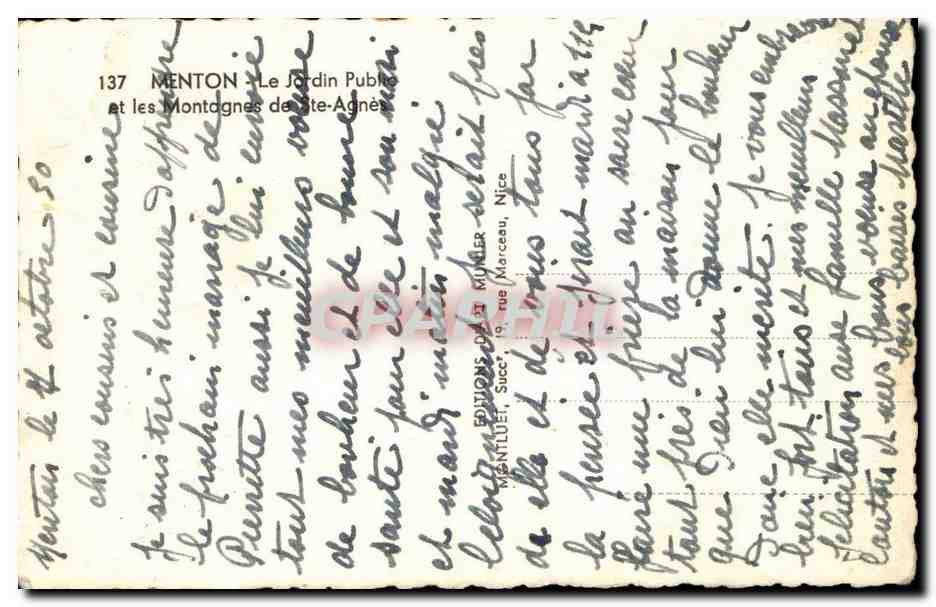 137 MENTON - Le Jardin Public
et les Montagnes de Ste-Agnès
EDITIONS D'ART MUNIER
MONTLUET, Succr, 19, rue Marceau, Nice
CPARHIT
Menton le 17 octobre 50
chers cousins et cousine
Je suis très heureuse d'apprendre
le prochain mariage de
Pierrette aussi je lui envoie
tout mes meilleurs vœux
de bonheur et de bonne
santé pour elle et son mari
et mardi matin malgré
l'eloignement je serait près
de elle et de vous tous par
la pensée et firat mardi a 11h
faire une prière au sacre cœur
tout près de la maison pour
que Dieu lui donne le bonheur
Donc elle merite. Je vous embrasse
bien fort tous et mes meilleurs
felicitation aux famille
et mes bons voeux au
tous bons baisers